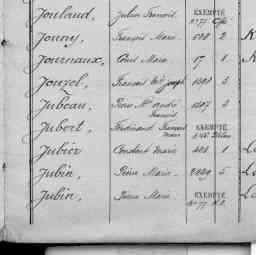 Joulaud, Julien François EXEMPTÉ
N° 77
Jouny, François Marie 508 2
Journaux, Marie 17 1
Jouzel, François Joseph 1508 3
Jubeau, Pierre Me André François 1507 3
Jubert, Ferdinand François Marie EXEMPTÉ
Jubier Constant Marie 408 1
Jubin, Pierre Marie 2229 5
Jubin, Pierre Marie EXEMPTÉ
N° 77